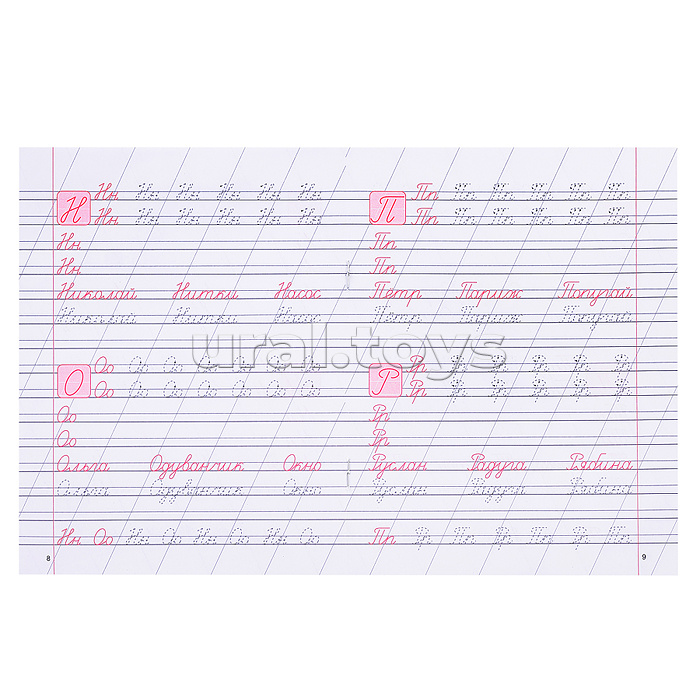 Н Нн Нн Нн Нн Нн Нн
Нн Нн Нн Нн Нн Нн
Нн
Нн
Николай Нитки Насос
Николай Нитки Насос
О Оо Оо Оо Оо Оо Оо Оо
Оо Оо Оо Оо Оо Оо Оо
Оо
Оо
Ольга Одуванчик Окно
Ольга Одуванчик Окно
Нн Оо Нн Оо Нн Оо Нн Оо
8
П Пп Пп Пп Пп Пп Пп
Пп Пп Пп Пп Пп Пп
Пп
Пп
Пётр Париж Попугай
Пётр Париж Попугай
Р Рр Рр Рр Рр Рр Рр
Рр Рр Рр Рр Рр Рр
Рр
Рр
Руслан Радуга Рябина
Руслан Радуга Рябина
Пп Рр Пп Рр Пп Рр Пп
9
ural.toys